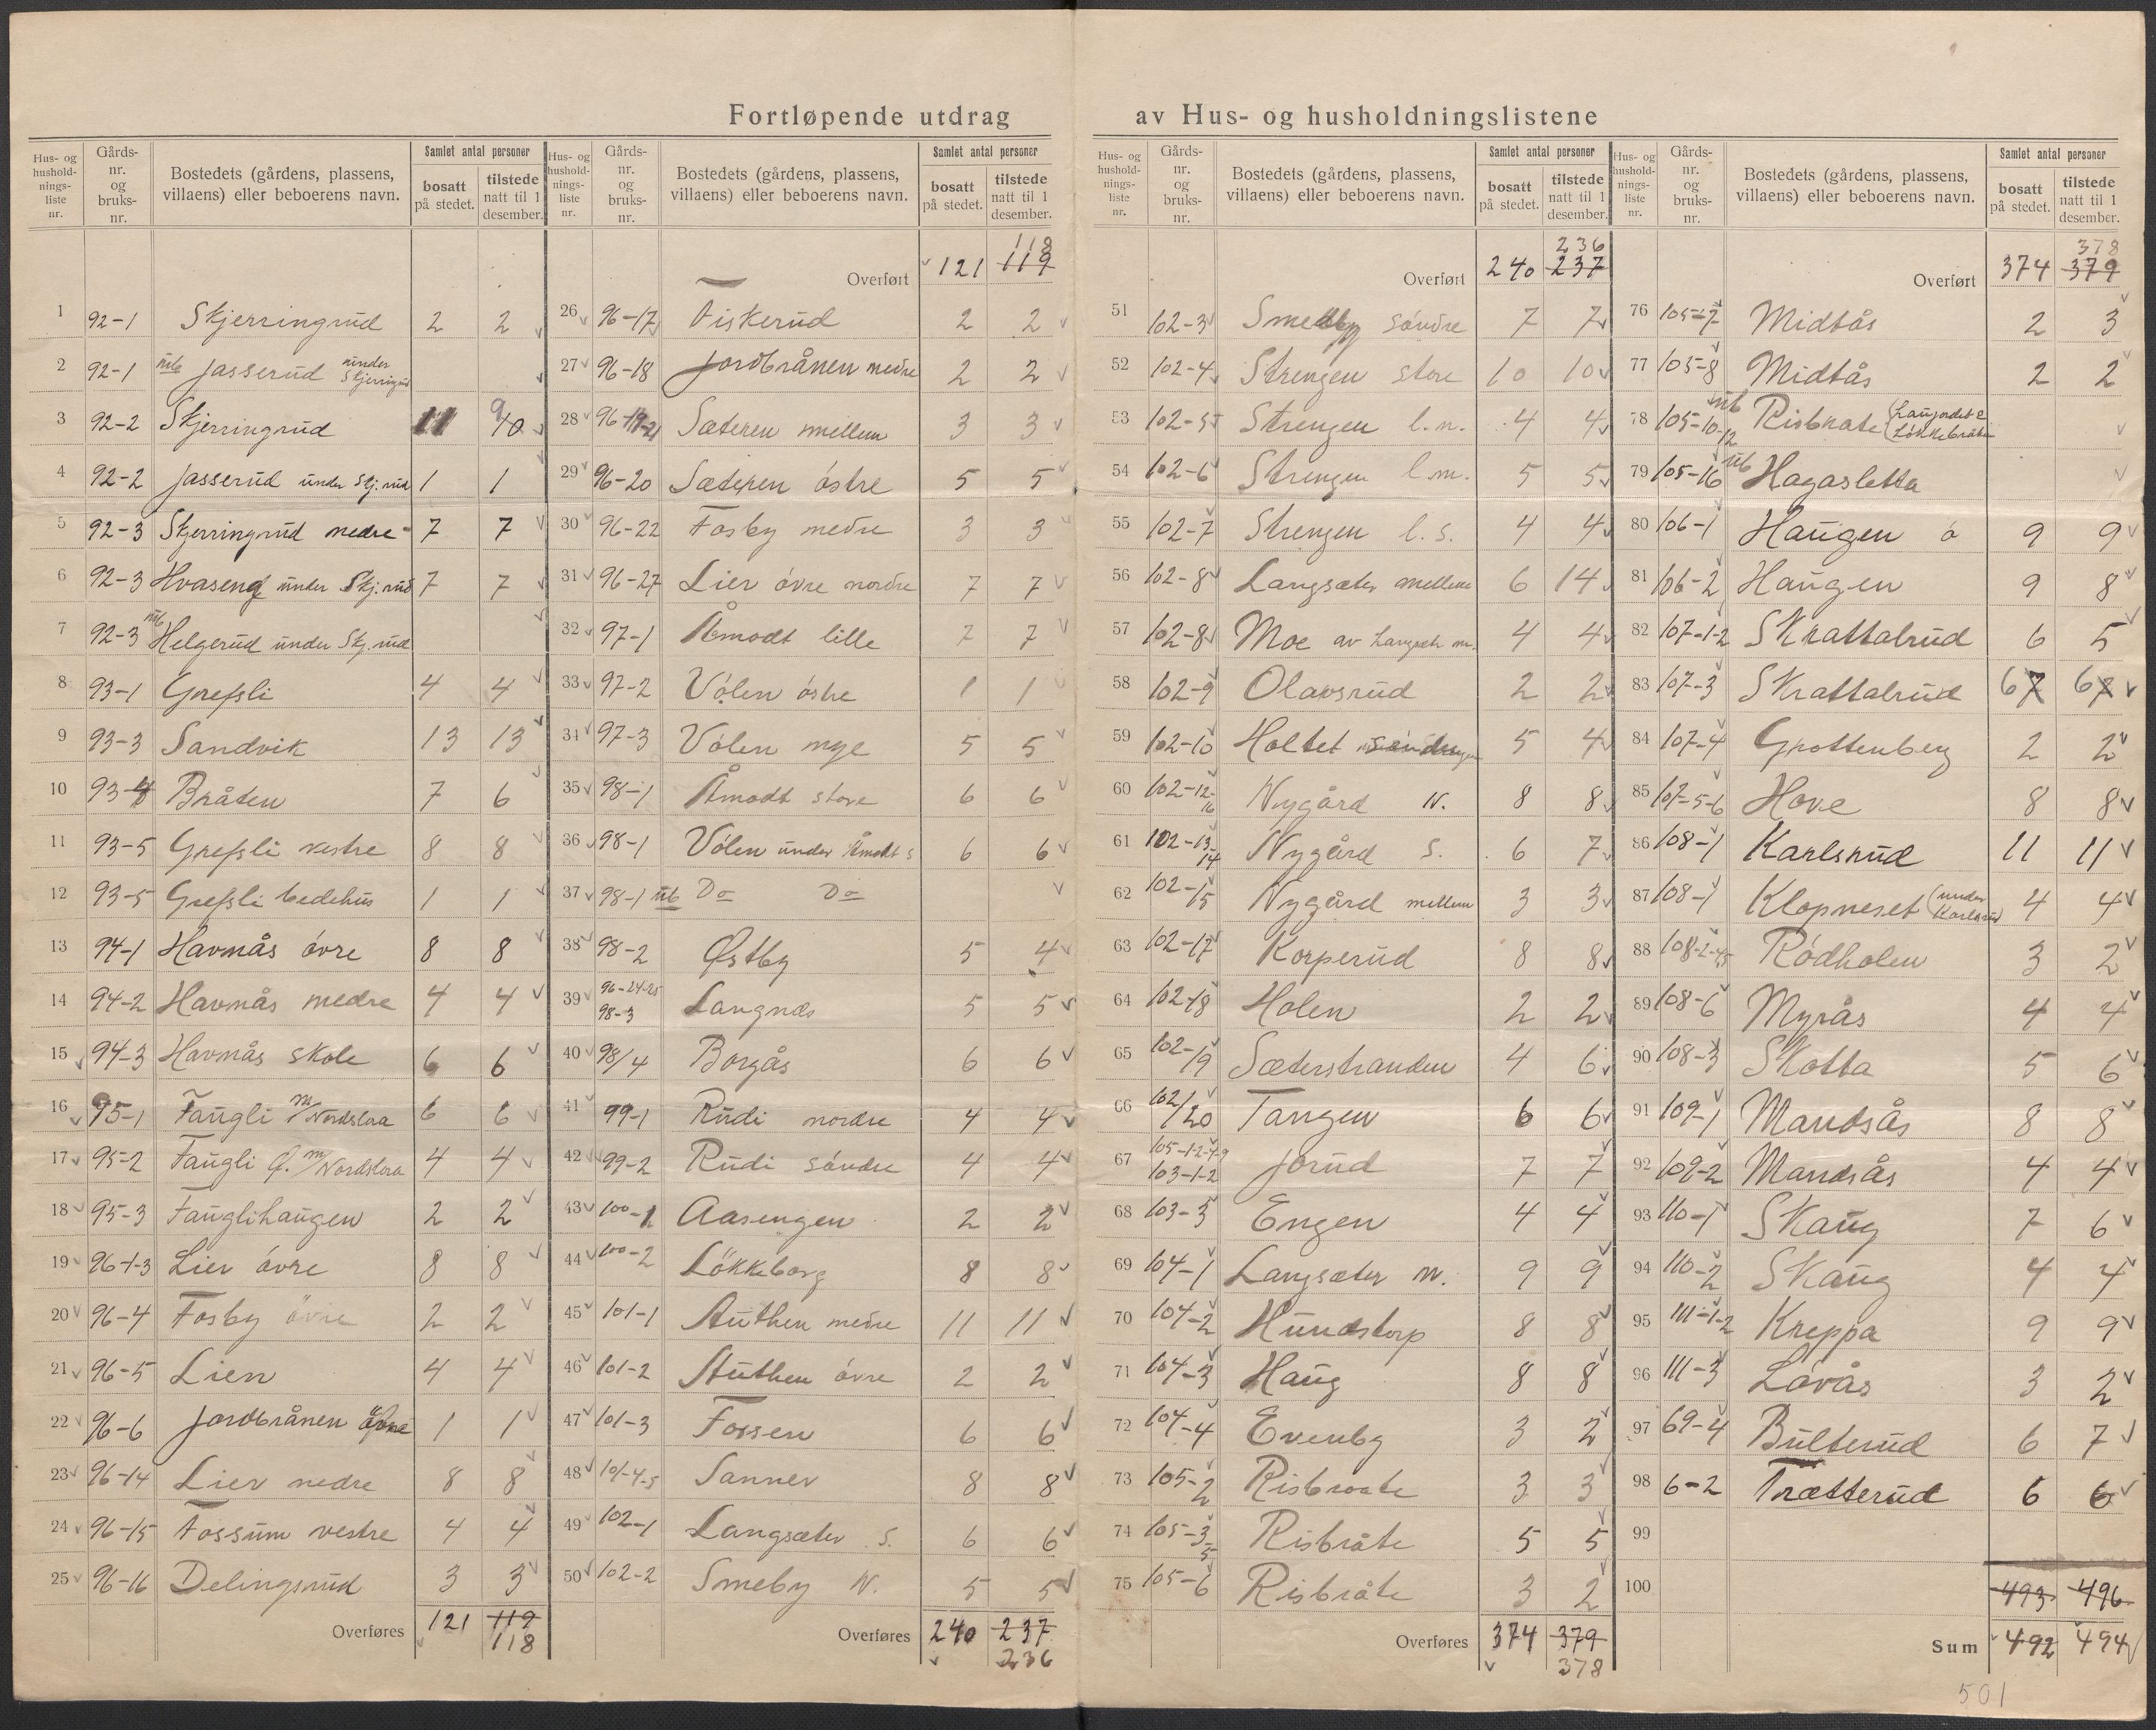 Fortløpende utdrag av Hus- og husholdningslistene
Hus- og hushold- nings- liste nr. | Gårds- nr. og bruks- nr. | Bostedets (gårdens, plassens, villaens) eller beboerens navn. | Samlet antal personer | bosatt på stedet. | tilstede natt til 1 desember.
1 92-1 Skjerringrud 2 2
2 92-1 ub Jasserud under Skjerringrud
3 92-2 Skjerringrud 11 9 10
4 92-2 Jasserud under Skj.rud 1 1
5 92-3 Skjerringrud nedre 7 7
6 92-3 Hvaseng under Skj.rud 7 7
7 92-3 ub Helgerud under Skj.rud
8 93-1 Grefsli 4 4
9 93-3 Sandvik 13 13
10 93-4 Bråten 7 6
11 93-5 Grefsli vestre 8 8
12 93-5 Grefsli bedehus 1 1
13 94-1 Havnås óvre 8 8
14 94-2 Havnås nedre 4 4
15 94-3 Havnås skole 6 6
16 95-1 Faugli m/Nordstoa 6 6
17 95-2 Faugli Ø. m/Nordstoa 4 4
18 95-3 Fauglihaugen 2 2
19 96-1-3 Lier óvre 8 8
20 96-4 Fosby övre 2 2
21 96-5 Lien 4 4
22 96-6 Jordbrånen övre 1 1
23 96-14 Lier nedre 8 8
24 96-15 Fossum vestre 4 4
25 96-16 Delingsrud 3 3
Overføres 121 119
118
Hus- og hushold- nings- liste nr. | Gårds- nr. og bruks- nr. | Bostedets (gårdens, plassens, villaens) eller beboerens navn. | Samlet antal personer | bosatt på stedet. | tilstede natt til 1 desember.
118
Overført 121 119
26 96-17 Fiskerud 2 2
27 96-18 Jordbrånen nedre 2 2
28 96-19-21 Sæteren mellem 3 3
29 96-20 Sæteren óstre 5 5
30 96-22 Fosby nedre 3 3
31 96-27 Lier óvre nordre 7 7
32 97-1 Åmodt lille 7 7
33 97-2 Vólen óstre 1 1
34 97-3 Vólen nye 5 5
35 98-1 Åmodt store 6 6
36 98-1 Vólen under Åmodt s 6 6
37 98-1 ub Do Do
38 98-2 Østby 5 4
39 96-24-25 98-3 Langnes 5 5
40 98/4 Borgås 6 6
41 99-1 Rudi nordre 4 4
42 99-2 Rudi sóndre 4 4
43 100-1 Aasengen 2 2
44 100-2 Lökkeborg 8 8
45 101-1 Authen nedre 11 11
46 101-2 Authen óvre 2 2
47 101-3 Fossen 6 6
48 101-4-5 Sanner 8 8
49 102-1 Langsæter S. 6 6
50 102-2 Smeby N. 5 5
Overføres 240 237
236
Hus- og hushold- nings- liste nr. | Gårds- nr. og bruks- nr. | Bostedets (gårdens, plassens, villaens) eller beboerens navn. | Samlet antal personer | bosatt på stedet. | tilstede natt til 1 desember.
236
Overført 240 237
51 102-3 Smedby sóndre 7 7
52 102-4 Strengen store 10 10
53 102-5 Strengen l.n. 4 4
54 102-6 Strengen l.m. 5 5
55 102-7 Strengen l.s. 4 4
56 102-8 Langsæter mellem 6 14
57 102-8 Moe av Langsæter m. 4 4
58 102-9 Olavsrud 2 2
59 102-10 Holtet 5 4
60 102-12-16 Nygård N. 8 8
61 102-13-14 Nygård S. 6 7
62 102-15 Nygård mellem 3 3
63 102-17 Korperud 8 8
64 102-18 Holen 2 2
65 102-19 Sæterstranden 4 6
66 102/20 Tangen 6 6
67 105-1-2-4-9 103-1-2 Jorud 7 7
68 103-3 Engen 4 4
69 104-1 Langsæter N. 9 9
70 104-2 Hundstorp 8 8
71 104-3 Haug 8 8
72 104-4 Evenby 3 2
73 105-2 Risbraate 3 3
74 105-3-5 Risbråte 5 5
75 105-6 Risbråte 3 2
Overføres 374 379
378
Hus- og hushold- nings- liste nr. | Gårds- nr. og bruks- nr. | Bostedets (gårdens, plassens, villaens) eller beboerens navn. | Samlet antal personer | bosatt på stedet. | tilstede natt til 1 desember.
378
Overført 374 379
76 105-7 Midtås 2 3
77 105-8 Midtås 2 2
78 105-10-12 ub Risbraate (Laugordet & Lökkebråte
79 105-16 ub Hagasletta
80 106-1 Haugen ó 9 9
81 106-2 Haugen 9 8
82 107-1-2 Skrattalrud 6 5
83 107-3 Skrattalrud 6 7 6 7
84 107-4 Grottenberg 2 2
85 107-5-6 Hove 8 8
86 108-1 Karlsrud 11 11
87 108-1 Klopneset (under Karlsrud 4 4
88 108-2-4-5 Ródholen 3 2
89 108-6 Myrås 4 4
90 108-3 Skotta 5 6
91 109-1 Mandsås 8 8
92 109-2 Mandsås 4 4
93 110-1 Skaug 7 6
94 110-2 Skaug 4 4
95 111-1-2 Kreppa 9 9
96 111-3 Lóvås 3 2
97 69-4 Bulterud 6 7
98 6-2 Trætterud 6 6
99
100
493 496
Sum 492 494
501